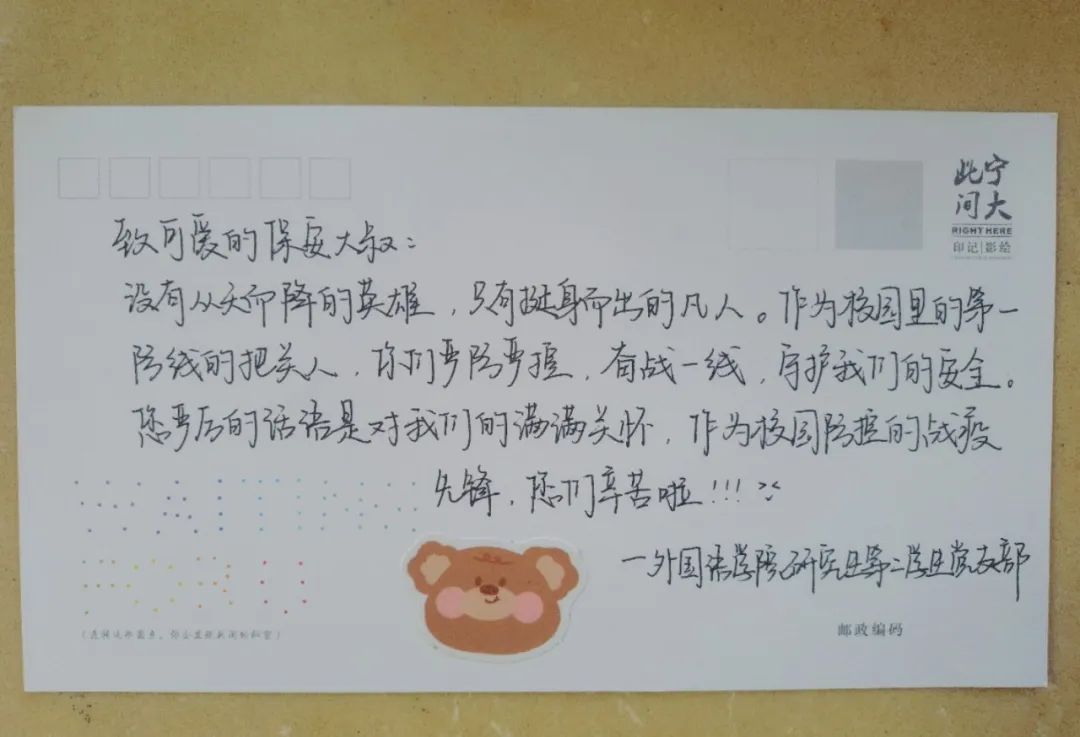 此宁
间大
RIGHT HERE
印记|影绘
致可爱的保安大叔：
没有从天而降的英雄，只有挺身而出的凡人。作为校园里的第一
防线的把关人，你们严防严控，奋战一线，守护我们的安全。
您严厉的话语是对我们的满满关怀，作为校园防控的战疫
先锋，您们辛苦啦!!!
一外国语学院研究生第二学生党支部
邮政编码